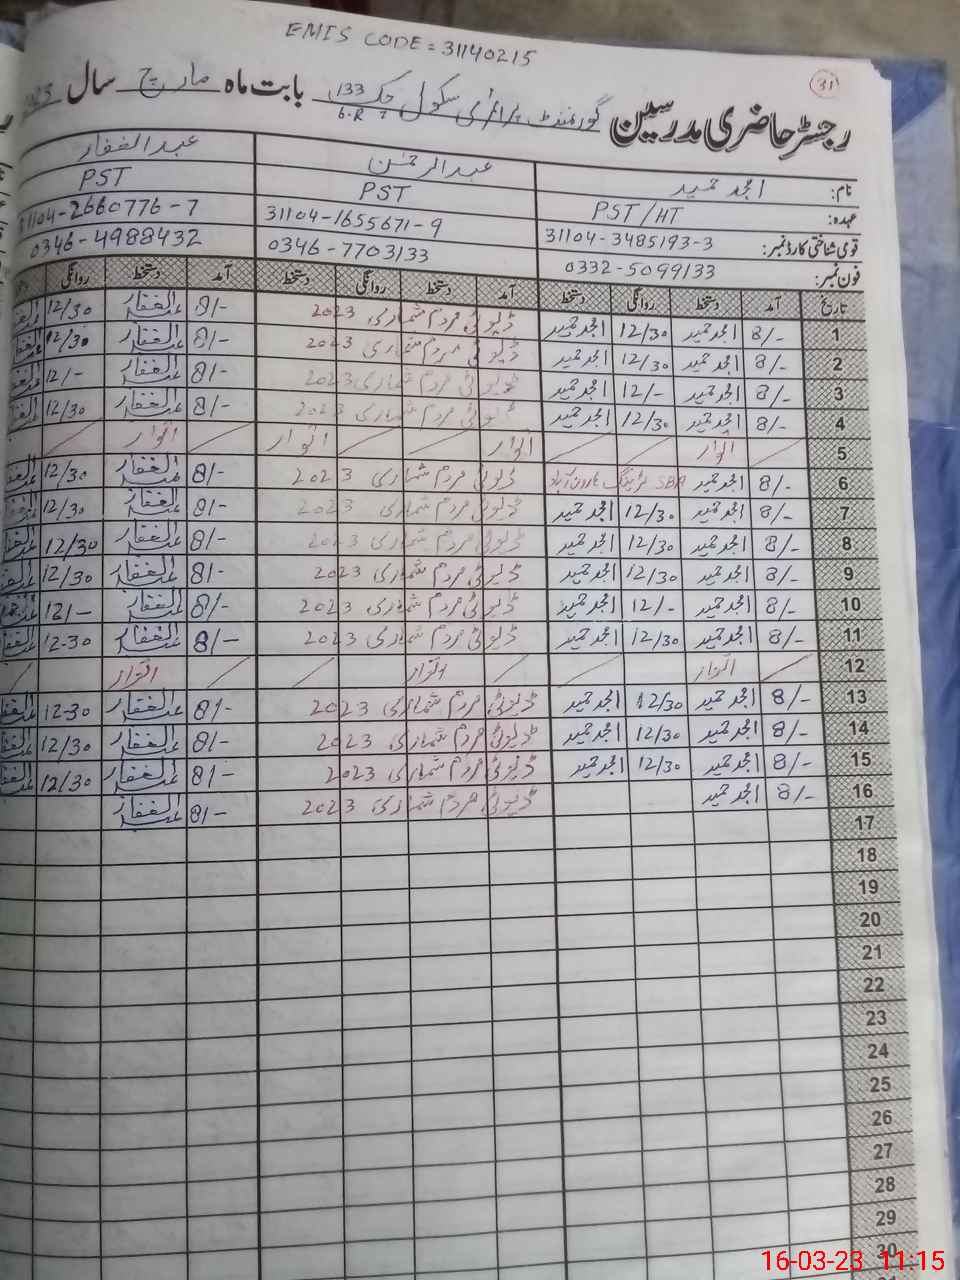 EMIS CODE = 31140215
31
رجسٹر حاضری مدرسین گورنمنٹ پرائمری سکول چک 133 6.R بابت ماہ مارچ سال
نام: امجد حمید عبدالرحمٰن عبدالغفار
عہدہ: PST/HT PST PST
قومی شناختی کارڈ نمبر: 31104-3485193-3 31104-1655671-9 31104-2660776-7
فون نمبر: 0332-5099133 0346-7703133 0346-4988432
تاریخ آمد دستخط روانگی دستخط آمد دستخط روانگی دستخط آمد دستخط روانگی
1 8/- امجد حمید 12/30 امجد حمید ڈیوٹی مردم شماری 2023 8/- عبدالغفار 12/30
2 8/- امجد حمید 12/30 امجد حمید ڈیوٹی مردم شماری 2023 8/- عبدالغفار 12/30
3 8/- امجد حمید 12/- امجد حمید ڈیوٹی مردم شماری 2023 8/- عبدالغفار 12/-
4 8/- امجد حمید 12/30 امجد حمید ڈیوٹی مردم شماری 2023 8/- عبدالغفار 12/30
5 اتوار اتوار اتوار اتوار
6 8/- امجد حمید SBA ٹریننگ ہارون آباد ڈیوٹی مردم شماری 2023 8/- عبدالغفار 12/30
7 8/- امجد حمید 12/30 امجد حمید ڈیوٹی مردم شماری 2023 8/- عبدالغفار 12/30
8 8/- امجد حمید 12/30 امجد حمید ڈیوٹی مردم شماری 2023 8/- عبدالغفار 12/30
9 8/- امجد حمید 12/30 امجد حمید ڈیوٹی مردم شماری 2023 8/- عبدالغفار 12/30
10 8/- امجد حمید 12/- امجد حمید ڈیوٹی مردم شماری 2023 8/- عبدالغفار 12/-
11 8/- امجد حمید 12/30 امجد حمید ڈیوٹی مردم شماری 2023 8/- عبدالغفار 12-30
12 اتوار اتوار اتوار
13 8/- امجد حمید 12/30 امجد حمید ڈیوٹی مردم شماری 2023 8/- عبدالغفار 12-30
14 8/- امجد حمید 12/30 امجد حمید ڈیوٹی مردم شماری 2023 8/- عبدالغفار 12/30
15 8/- امجد حمید 12/30 امجد حمید ڈیوٹی مردم شماری 2023 8/- عبدالغفار 12/30
16 8/- امجد حمید ڈیوٹی مردم شماری 2023 8/- عبدالغفار
17
18
19
20
21
22
23
24
25
26
27
28
29
30
16-03-23 11:15